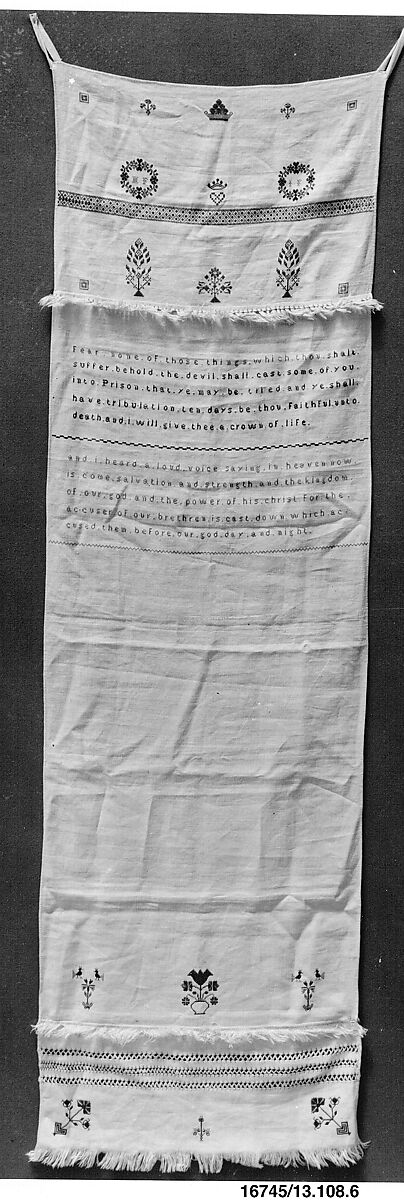 Fear. some. of. those things. which. thou. shalt.
suffer. behold. the. devil. shall. cast. some. of. you.
into. Prison. that. ye. may. be. tried. and ye. shall.
have. tribulation. ten. days. be. thou. Faithful. unto.
death. and. i. will. give. thee. a. crown. of. life.
and. i. heard. a. loud. voice saying. in. heaven now.
is. come. salvation and. strength. and. the. kingdom.
of. our. god. and. the. power. of. his. christ For the.
accuser of our. brethren. is. cast. down which ac-
cused. them. before. our. god. day. and. night.
16745/13.108.6